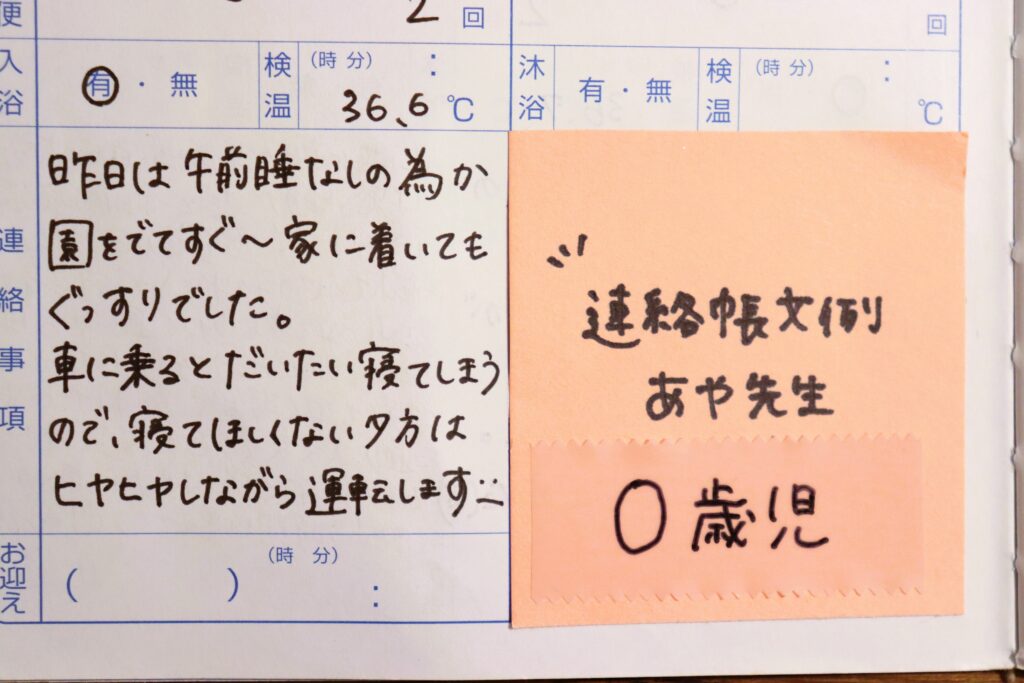 便 2 回 回
入浴 有・無 検温 (時 分) : 36.6 ℃ 沐浴 有・無 検温 (時 分) : ℃
連絡事項
昨日は午前睡なしの為か
園をでてすぐ〜家に着いても
ぐっすりでした。
車に乗るとだいたい寝てしまう
ので、寝てほしくない夕方は
ヒヤヒヤしながら運転します
連絡帳文例
あや先生
0歳児
お迎え ( ) (時 分) :